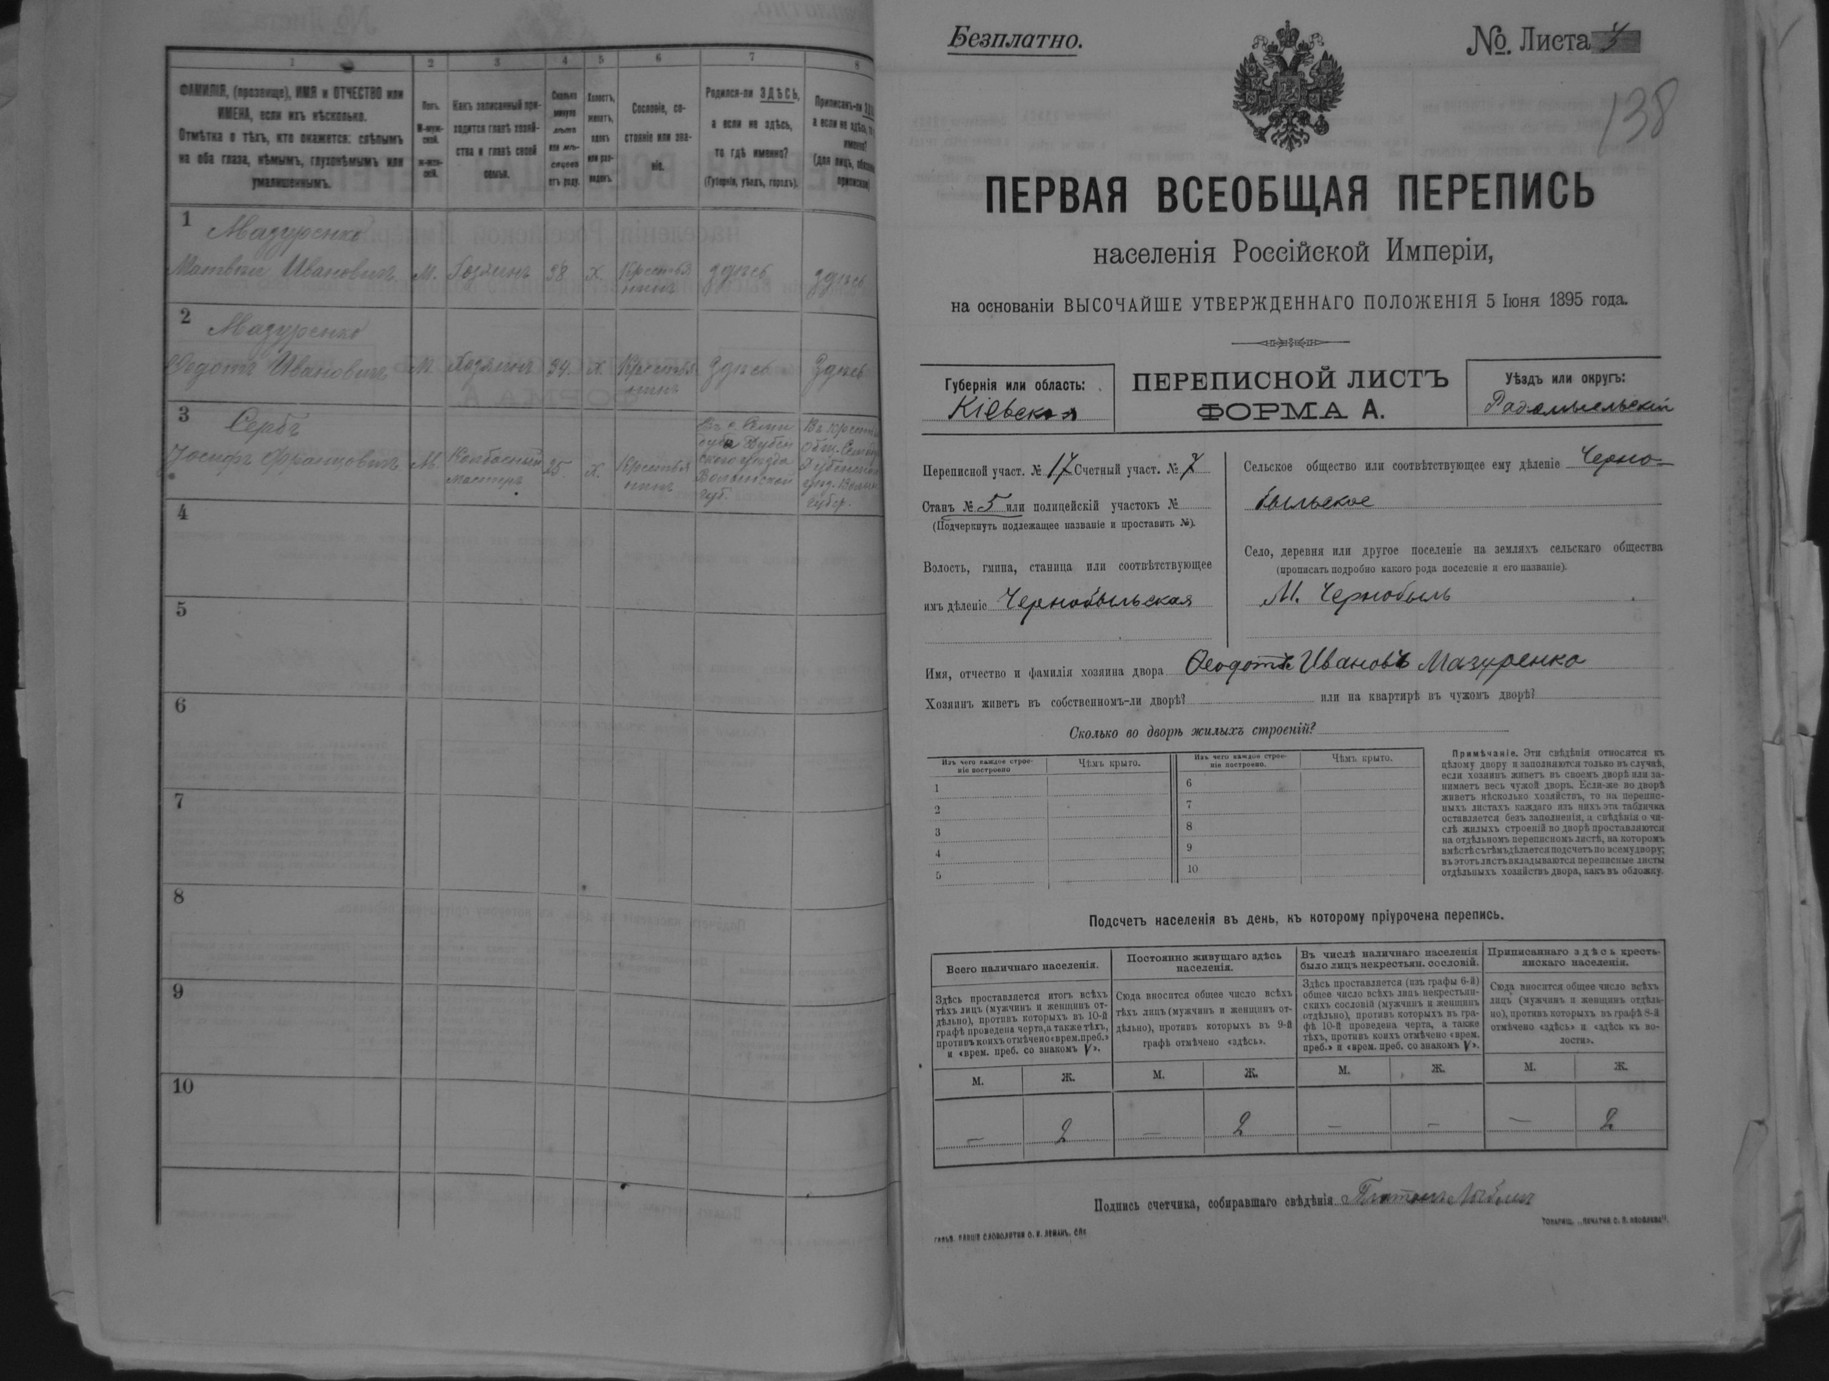 1 2 3 4 5 6 7 8
ФАМИЛІЯ, (прозвище), ИМЯ и ОТЧЕСТВО или
ИМЕНА, если ихъ нѣсколько.
Отмѣтка о тѣхъ, кто окажется: слѣпымъ
на оба глаза, нѣмымъ, глухонѣмымъ или
умалишеннымъ.
Полъ.
М-муж-
ской.
ж-жен-
скій.
Какъ записанный при-
ходится главѣ хозяй-
ства и главѣ своей
семьи.
Сколько
минуло
лѣтъ
или мѣ-
сяцевъ
отъ роду.
Холостъ,
женатъ,
вдовъ
или раз-
веденъ.
Сословіе, со-
стояніе или зва-
ніе.
Родился-ли ЗДѢСЬ,
а если не здѣсь,
то гдѣ именно?
(Губернія, уѣздъ, городъ).
Приписанъ-ли
а если не здѣсь,
1 Мазуренко
Матвѣй Ивановичъ М. Хозяинъ 38 Х. Крестья
нинъ здѣсь здѣсь
2 Мазуренко
Ѳеодотъ Ивановичъ М. Хозяинъ 34. Х. Крестья
нинъ Здѣсь Здѣсь
3 Сербъ
Іосифъ Францовичъ М. Колбасный
мастеръ 25. Х. Крестья
нинъ
Дубен
скаго уѣзда
Волынской
губ.
4
5
6
7
8
9
10
Безплатно.
№ Листа
138
ПЕРВАЯ ВСЕОБЩАЯ ПЕРЕПИСЬ
населенія Россійской Имперіи,
на основаніи ВЫСОЧАЙШЕ УТВЕРЖДЕННАГО ПОЛОЖЕНІЯ 5 Іюня 1895 года.
Губернія или область:
Кіевская
ПЕРЕПИСНОЙ ЛИСТЪ
ФОРМА А.
Уѣздъ или округъ:
Радомысльскій
Переписной участ. № 17 Счетный участ. № 7
Станъ № 5 или полицейскій участокъ №
(Подчеркнуть подлежащее названіе и проставить №).
Волость, гмина, станица или соотвѣтствующее
имъ дѣленіе Чернобыльская
Сельское общество или соотвѣтствующее ему дѣленіе Черно-
быльское
Село, деревня или другое поселеніе на земляхъ сельскаго общества
(прописать подробно какого рода поселеніе и его названіе).
М. Чернобыль
Имя, отчество и фамилія хозяина двора Ѳеодотъ Ивановъ Мазуренко
Хозяинъ живетъ въ собственномъ-ли дворѣ? или на квартирѣ въ чужомъ дворѣ?
Сколько во дворѣ жилыхъ строеній?
Изъ чего каждое строе-
ніе построено
Чѣмъ крыто.
Изъ чего каждое строе-
ніе построено.
Чѣмъ крыто.
1 6
2 7
3 8
4 9
5 10
Примѣчаніе. Эти свѣдѣнія относятся къ
цѣлому двору и заполняются только въ случаѣ,
если хозяинъ живетъ въ своемъ дворѣ или за-
нимаетъ весь чужой дворъ. Если-же во дворѣ
живетъ нѣсколько хозяйствъ, то на перепис-
ныхъ листахъ каждаго изъ нихъ эта табличка
оставляется безъ заполненія, а свѣдѣнія о чи-
слѣ жилыхъ строеній во дворѣ проставляются
на отдѣльномъ переписномъ листѣ, на которомъ
вмѣстѣ съ тѣмъ дѣлается подсчетъ по всему двору;
въ этотъ листъ вкладываются переписные листы
отдѣльныхъ хозяйствъ двора, какъ въ обложку.
Подсчетъ населенія въ день, къ которому пріурочена перепись.
Всего наличнаго населенія.
Здѣсь проставляется итогъ всѣхъ
тѣхъ лицъ (мужчинъ и женщинъ от-
дѣльно), противъ которыхъ въ 10-й
графѣ проведена черта, а также тѣхъ,
противъ коихъ отмѣчено «врем. преб.»
и «врем. преб. со знакомъ V».
Постоянно живущаго здѣсь
населенія.
Сюда вносится общее число всѣхъ
тѣхъ лицъ (мужчинъ и женщинъ от-
дѣльно), противъ которыхъ въ 9-й
графѣ отмѣчено «здѣсь».
Въ числѣ наличнаго населенія
было лицъ некрестьян. сословій.
Здѣсь проставляется (изъ графы 6-й)
общее число всѣхъ лицъ некрестьян-
скихъ сословій (мужчинъ и женщинъ
отдѣльно), противъ которыхъ въ гра-
фѣ 10-й проведена черта, а также
тѣхъ, противъ коихъ отмѣчено «врем.
преб.» и «врем. преб. со знакомъ V».
Приписаннаго здѣсь кресть-
янскаго населенія.
Сюда вносится общее число всѣхъ
лицъ (мужчинъ и женщинъ отдѣль-
но), противъ которыхъ въ графѣ 8-й
отмѣчено «здѣсь» и «здѣсь къ во-
лости».
М. Ж. М. Ж. М. Ж. М. Ж.
— 2 — 2 — — — 2
Подпись счетчика, собиравшаго свѣдѣнія